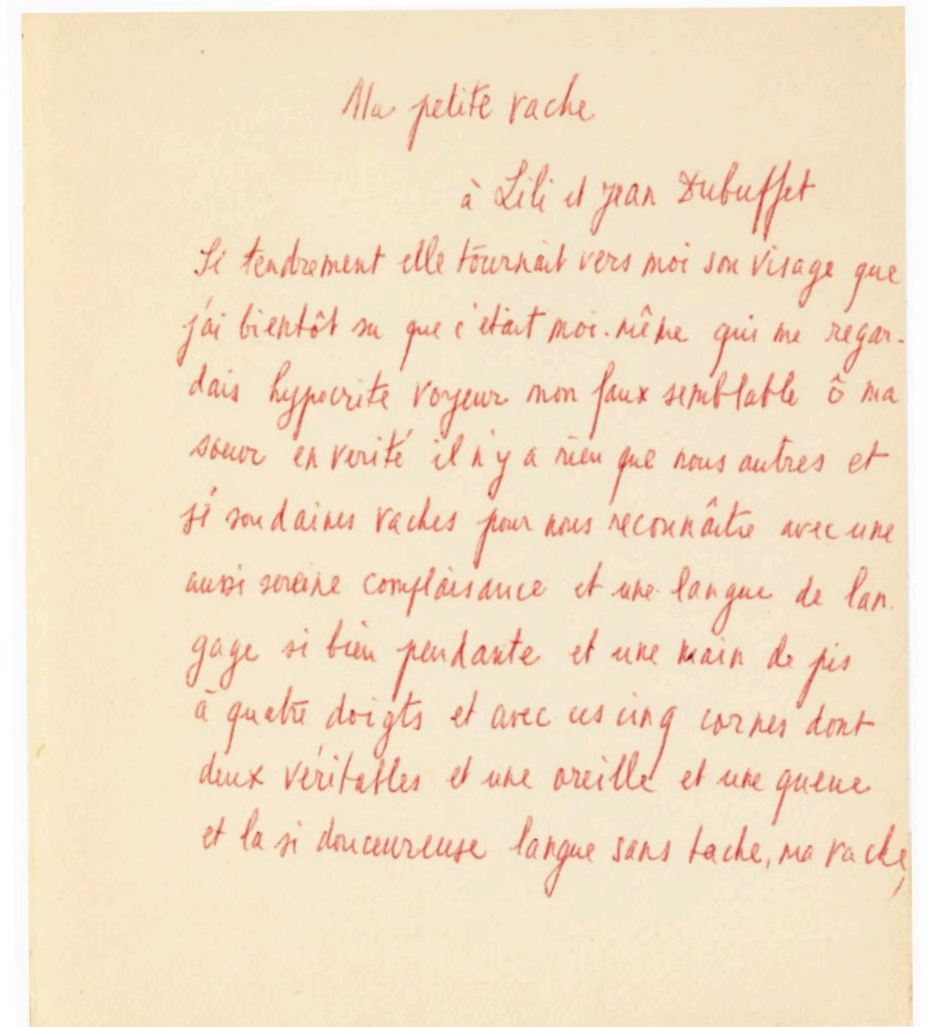 Ma petite vache
à Lili et Jean Dubuffet
Si tendrement elle tournait vers moi son visage que
j'ai bientôt su que c'était moi-même qui me regar-
dais hypocrite voyeur mon faux semblable ô ma
soeur en verité il n'y a rien que nous autres et
si soudaines vaches pour nous reconnâitre avec une
aussi sereine complaisance et une langue de lan-
gage si bien pendante et une main de pis
à quatre doigts et avec ces cinq cornes dont
deux véritables et une oreille et une queue
et la si douceureuse langue sans tache, ma vache,